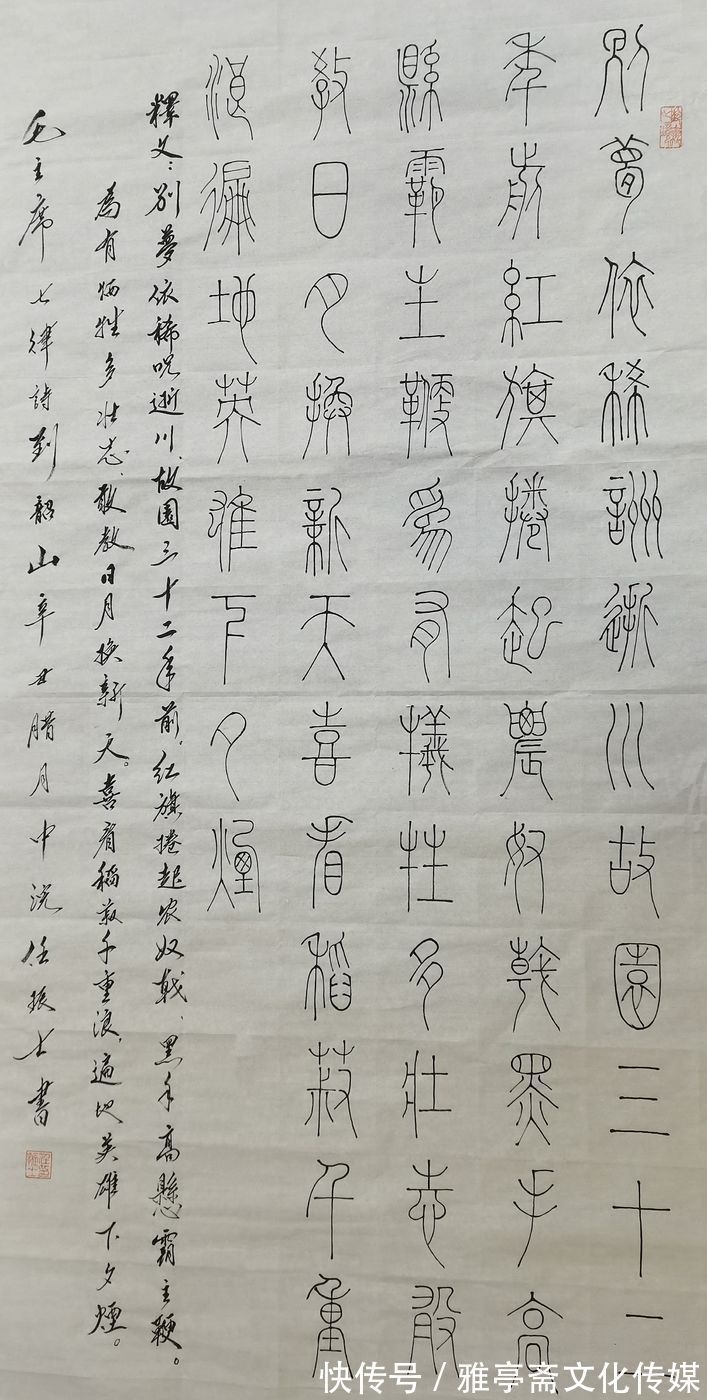 別夢依稀詶逝川故園三十二
年前紅旗捲起農奴戟黑手高
縣霸主鞭為有犧牲多壯志敢
教日月換新天喜看稻菽千重
浪徧地英雄下夕煙
釋义：别夢依稀呪逝川，故園三十二年前。红旗捲起农奴戟，黑手高懸霸主鞭。
為有牺牲多壮志，敢教日月换新天。喜看稻菽千重浪，遍地英雄下夕煙。
毛主席七律詩到韶山辛丑腊月中浣任振士書
快传号 / 雅亭斋文化传媒